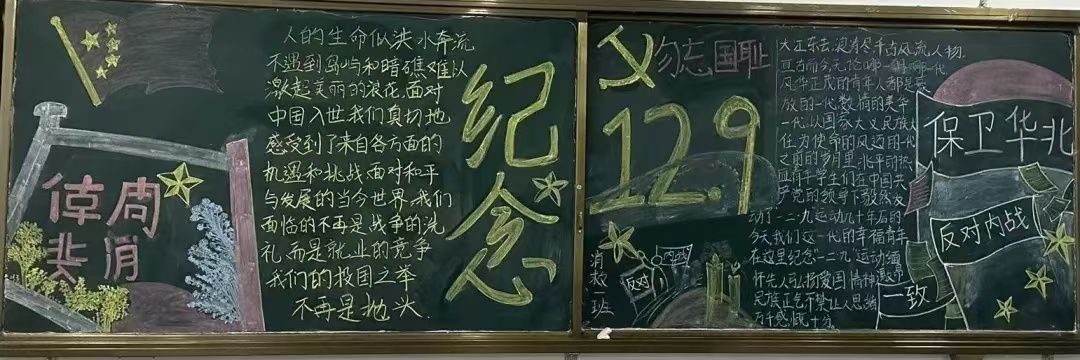 人的生命似洪水奔流
不遇到岛屿和暗礁难以
激起美丽的浪花.面对
中国入世我们真切地
感受到了来自各方面的
机遇和挑战面对和平
与发展的当今世界.我们
面临的不再是战争的洗
礼,而是就业的竞争
我们的报国之举
不再是抛头
纪念
12.9
勿忘国耻
大江东去,浪淘尽千古风流人物.
风华正茂的青年人都是
一代.以国家大义民族
任为使命的风
之前的岁月里.北平的热
血青年学生们在中国共
产党的领导下毅然发
动了一二·九运动几十年后的
今天我们这一代的幸福青年
在这里纪念一二·九运动缅
怀先人弘扬爱国情神
民族正气不禁让人思绪
万千感慨十分.
保卫华北
反对内战
一致
反对
内战